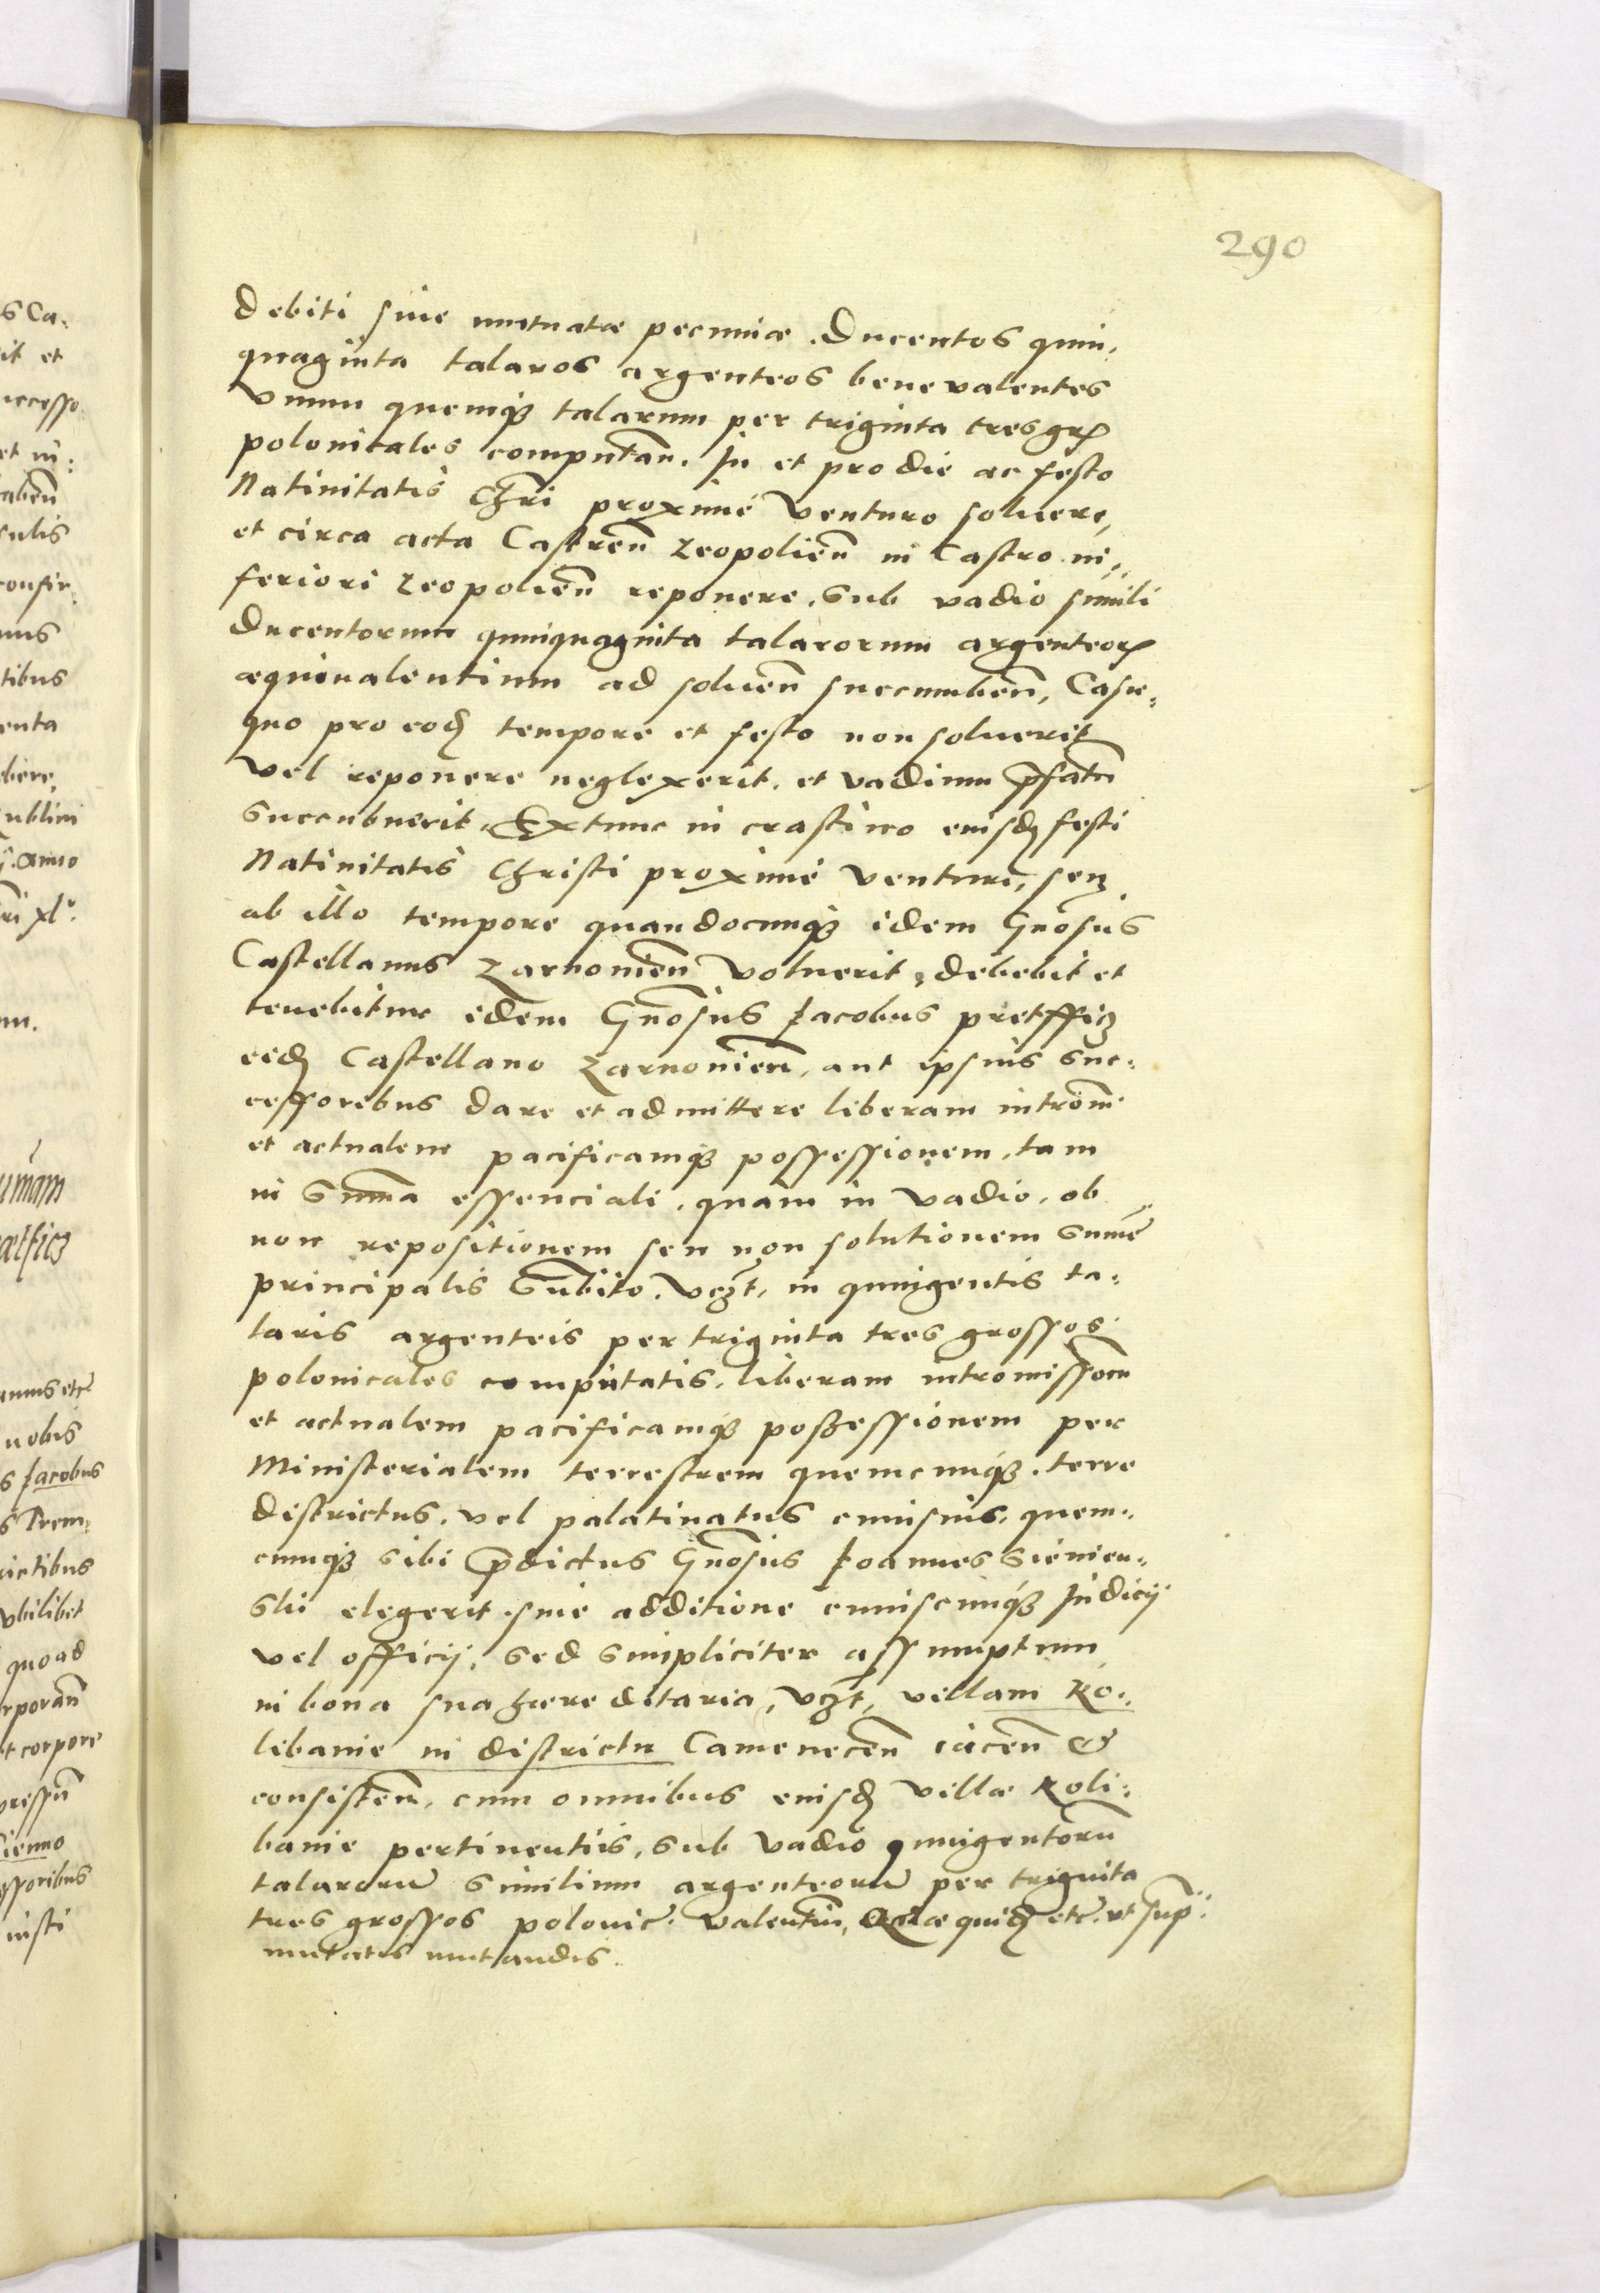 290
debiti siue mutuatæ pecuniæ. Ducentos quin,
quaginta talaros argenteos bene valentes
Vnum quemq3 talarum per triginta tres grꝭ
polonicales computan̄. In et pro die ac festo
Natiuitatis Chr̄i proximè venturo soluere,
et circa acta Castren̄ Leopolien̄ in Castro in,,
feriori Leopolien̄ reponere, sub vadio simili
Ducentorum quinquaginta talarorum argenteorꝭ
æquiualentium ad soluen̄ succumben̄, Casu,
quo pro eodꝫ tempore et festo non soluerit
vel reponere neglexerit. et vadium p̄fatū
succubuerit, Extunc in crastino eiusdꝫ festi
Natiuitatis Christi proximè venturi, seu
ab illo tempore quandocunq3 idem Gn̄osus
Castellanus Zarnouien̄ voluerit, debebit et
tenebitur idem Gn̄osus Jacobus pretffic3
eidꝫ Castellano Zarnouien̄, aut ipsius suc:
cessoribus dare et admittere liberam introm̄
et actualem pacificamq3 possessionem, tam
in sum̄a essenciali, quàm in vadio, ob
non repositionem seu non solutionem sum̄e
principalis subito. vcꝫt, in quingentis ta:
laris argenteis per triginta tres grossos
polonicales computatis, liberam intromissioem
et actualem pacificamq3 possessionem per
Ministerialem terrestrem quemcunq3. terre
districtus, vel palatinatus cuiusuis, quem:
cunq3 sibi p̄dictus Gn̄osus Joannes Sienien:
skii elegerit. sine additione cuiuscunq3 Judicij
vel officij, sed simpliciter assumptum
in bona sua hæreditaria, vcꝫt, villam Ko:
libanie in districtu Camenecen̄ iacen̄ et
consisten̄, cum omnibus eiusdꝫ villæ Koli:
banie pertinentiis, sub vadio quingentorū
talarorum similium argenteorum per triginta
tres grossos polonic̄. valentiū, Quæ quidꝫ etc̄. vt sup̄:
mutatis mutandis.